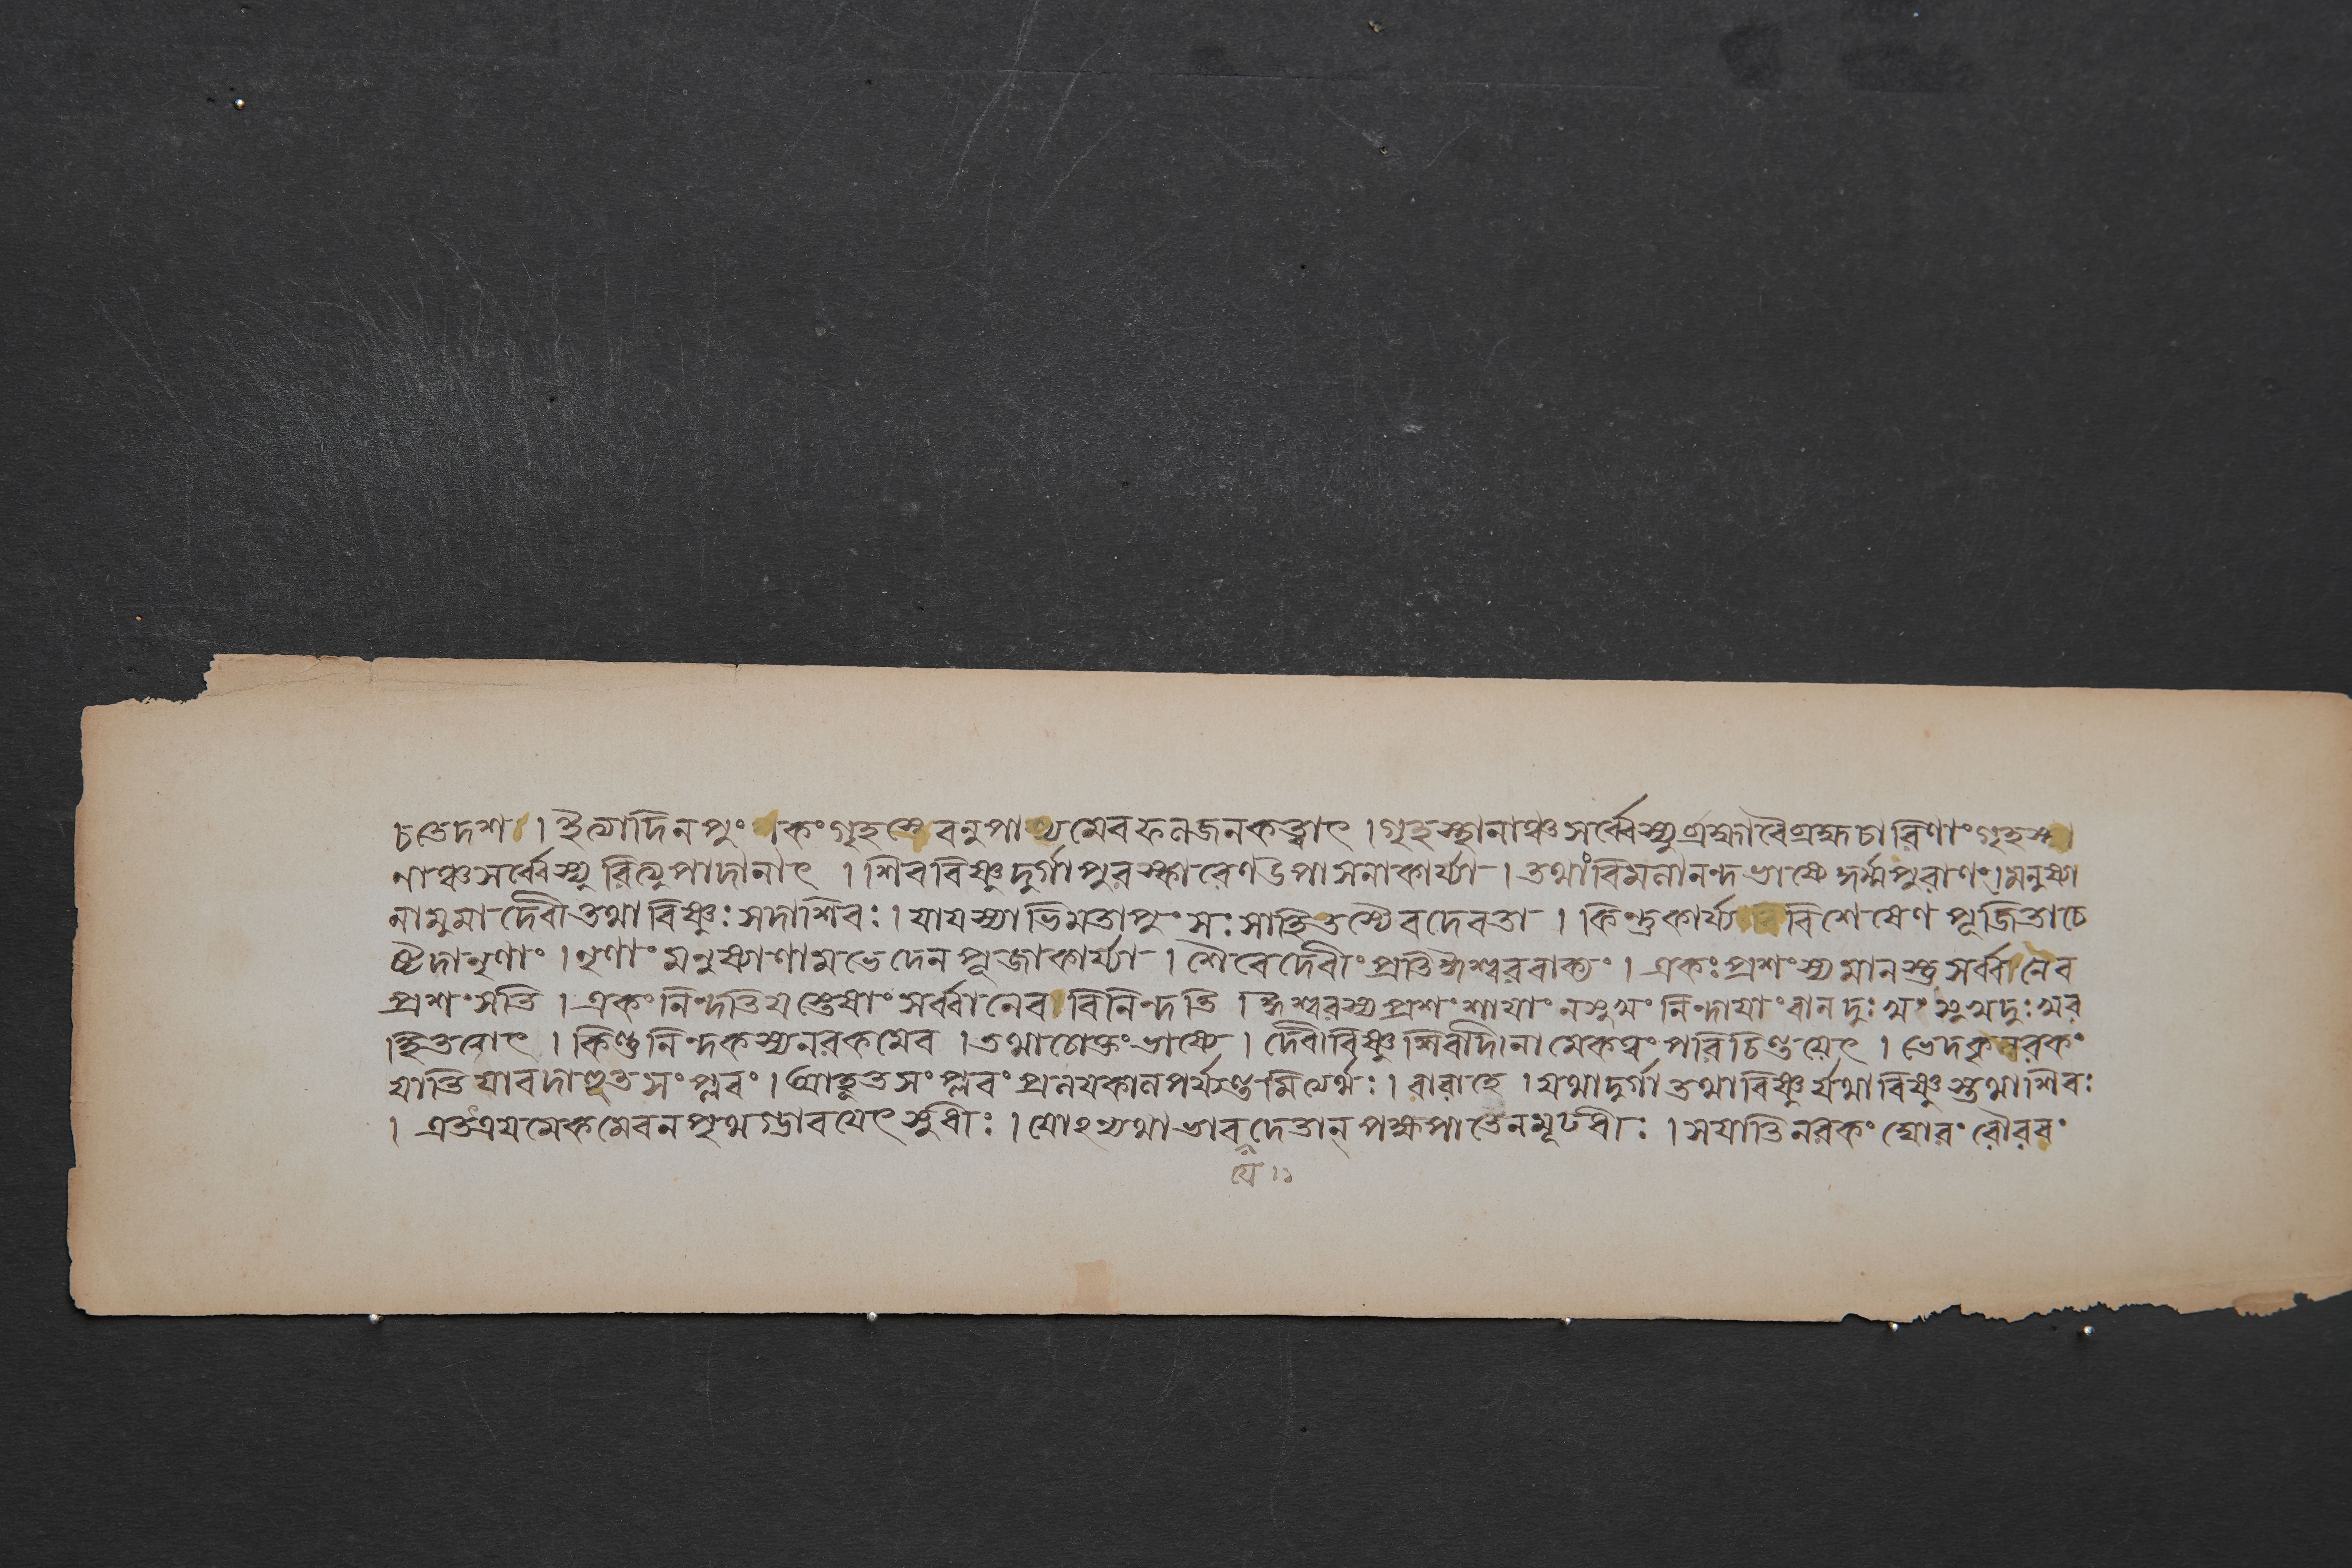 চতেদশ । ইত্যাদিন পুং কং গৃহস্থে বনুপাস্যমেব ফলজনকত্বাৎ । গৃহস্থানাঞ্চ সর্ব্বেস্যুর্ব্রহ্মাবৈ ব্রহ্মচারিণাং গৃহস্থা
নাঞ্চ সর্ব্বেস্যুরিত্যুপাদানাৎ । শিববিষ্ণুদুর্গাপুরস্কারেণ উপাসনাকার্য্যা । তথাবিমলানন্দভাষ্যে পুরাণং । মনুষ্যা
নামুমাদেবী তথাবিষ্ণুঃ সদাশিবঃ । যাযস্যাভিমতাপুংসঃ সাহিতস্যৈবদেবতা । কিন্তুকার্য্য বিশেষেণ পূজিতাচে
ষ্টদানৃণাং । নৃণাং মনুষ্যাণামভেদেনপূজাকার্য্যা । শৈবেদেবীং প্রতিঈশ্বরবাক্যং । একঃ প্রশংস্যমানস্তু সর্ব্বানেব
প্রশংসতি । একং নিন্দতিযস্তেষাং সর্ব্বানেব বিনিন্দতি । ঈশ্বরস্যপ্রশংশাযাং নসুখং নিন্দাযাং বানদুঃখং সুখদুঃখর
হিতত্বাৎ । কিন্তুনিন্দকস্যনরকমেব । তথাচোক্তংভাষ্যে । দেবীবিষ্ণুশিবাদীনামেকত্বং পরিচিন্তয়েৎ । ভেদকৃন্নরকং
যাতি যাবদাহূতসংপ্লবং । আহূতসংপ্লবং প্রলযকালপর্য্যন্তমিত্যর্থঃ । বারাহে । যথাদুর্গা তথাবিষ্ণুর্যথাবিষ্ণুস্তথাশিবঃ
। এতত্ত্রযমেকমেবনপৃথগ্ভাবযেৎ সুধীঃ । যোঽন্যথাভাবদেতান্ পক্ষপাতেনমূঢধীঃ । সযাতিনরকং ঘোরং রৌরবং
যে ১১